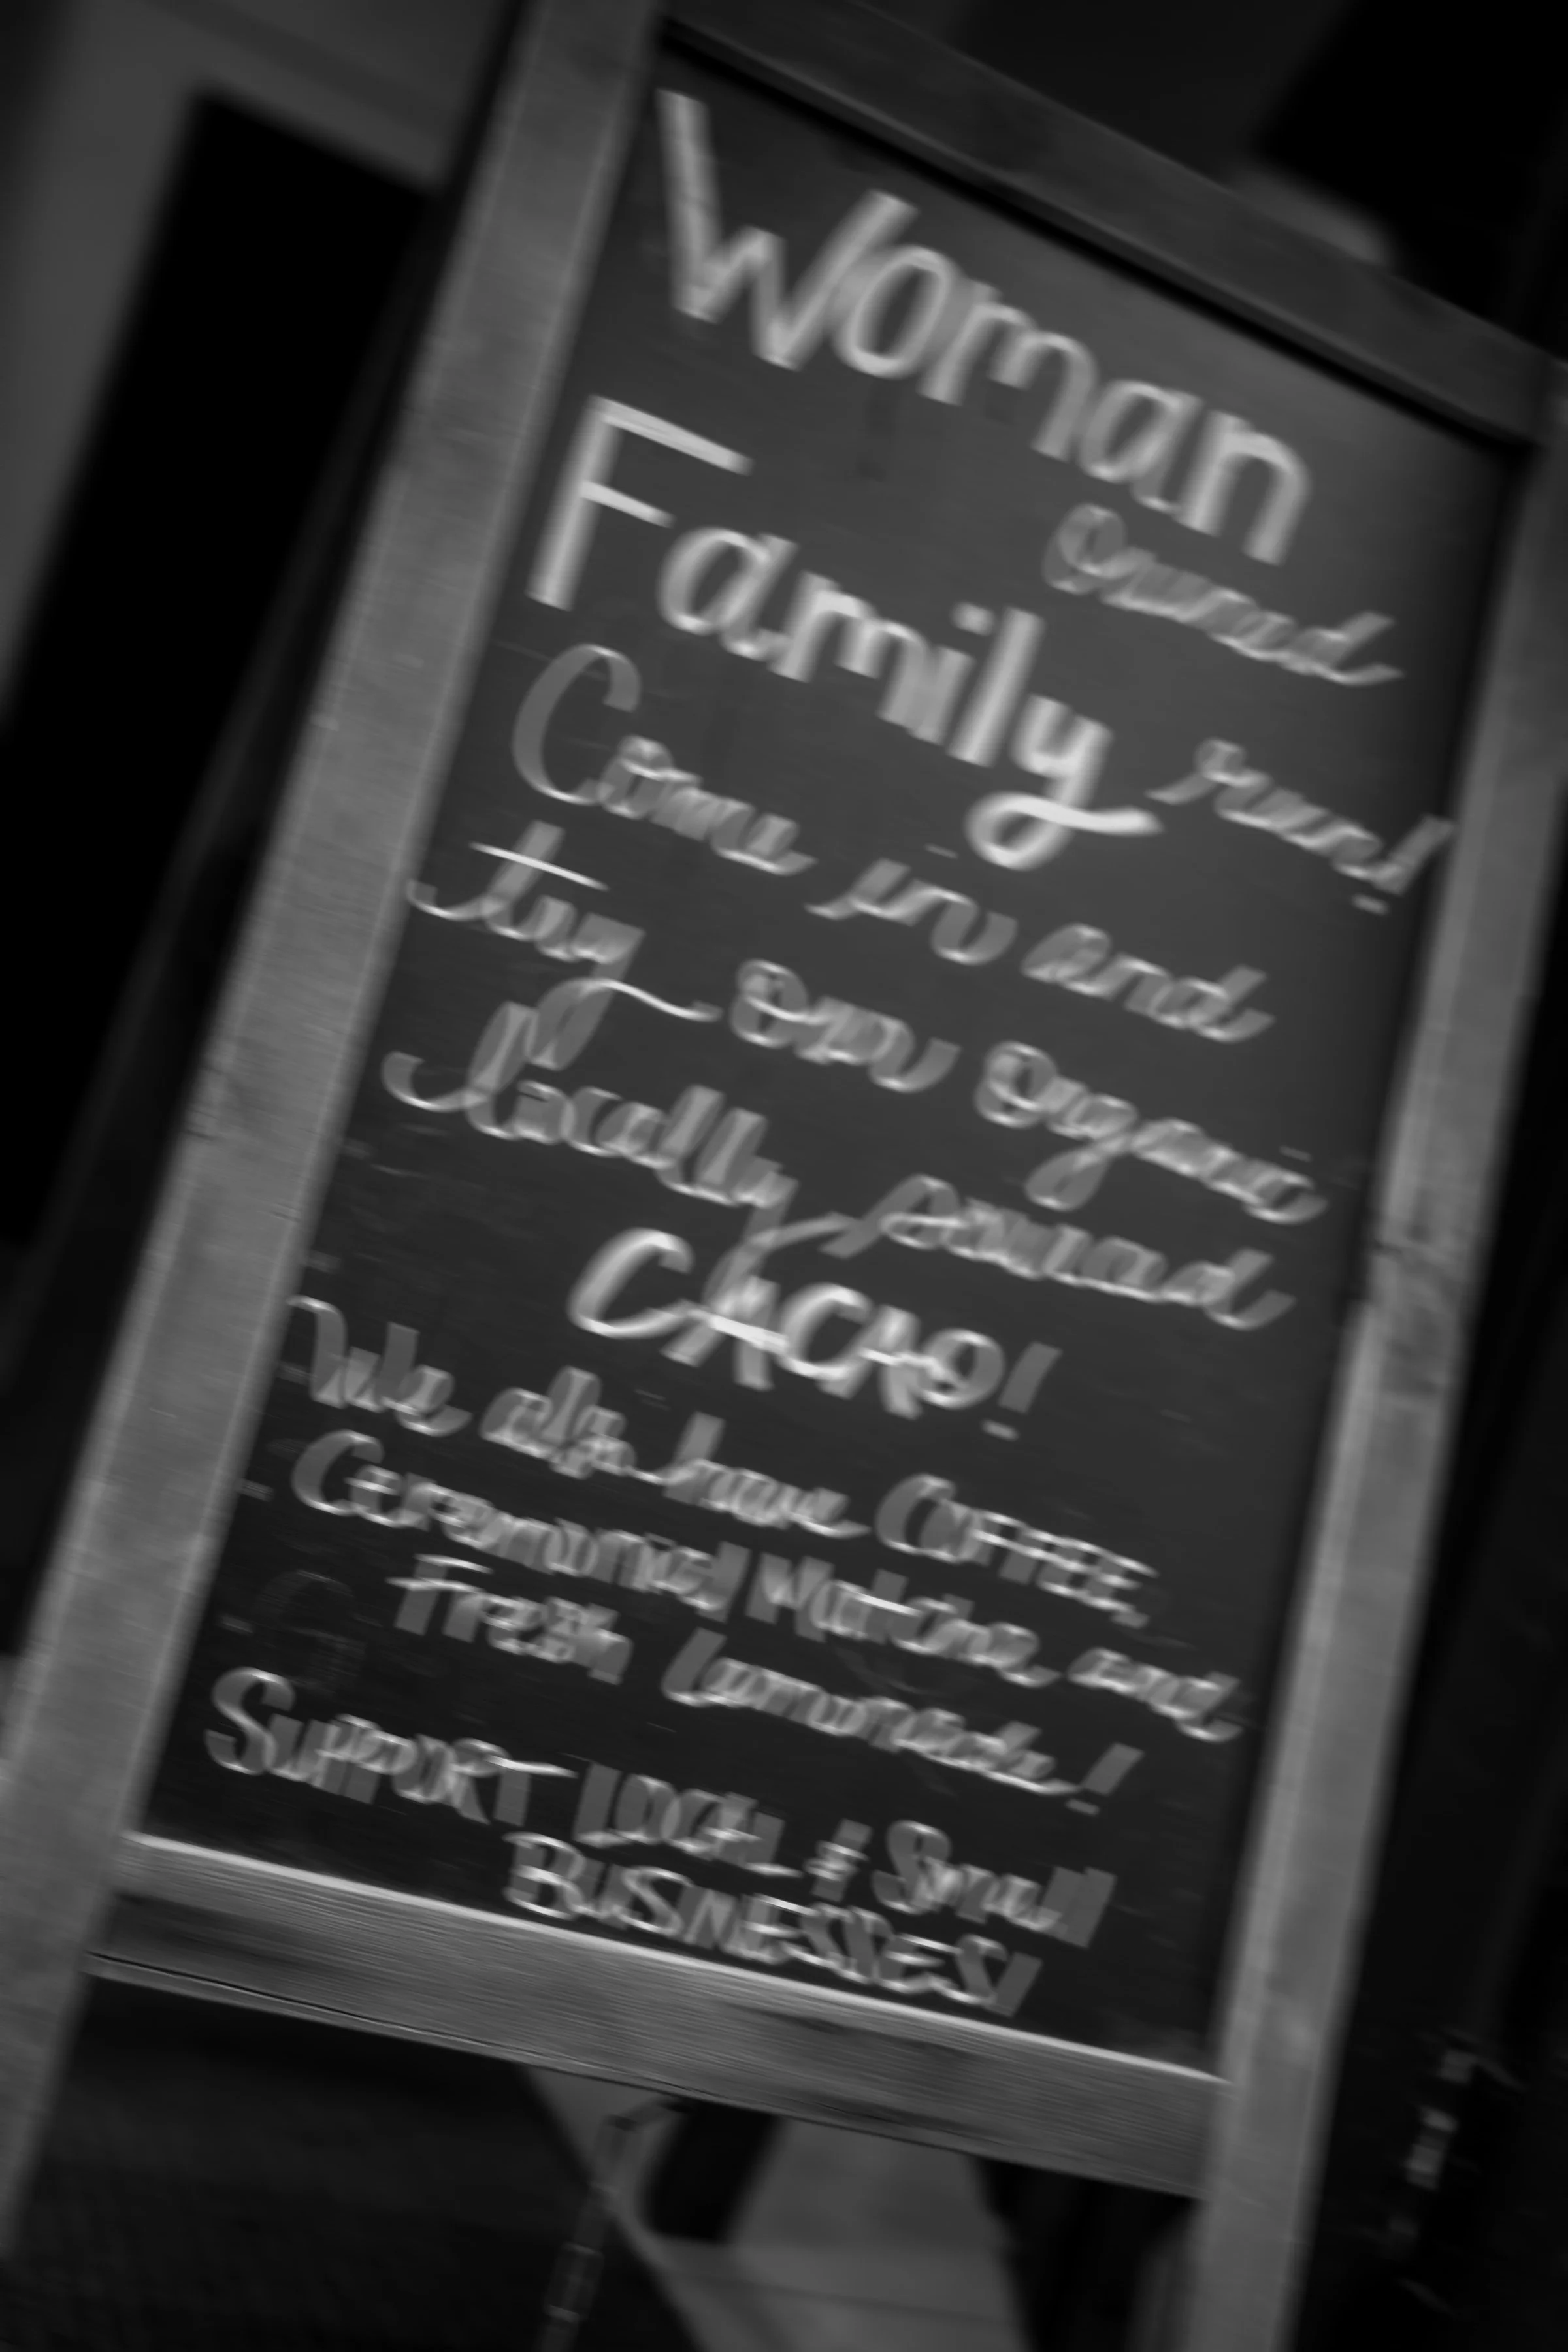 Woman
owned
Family run!
Come in and
try our organic
locally sourced
CACAO!
We also have COFFEE,
Ceremonial Matcha and
Fresh Lemonade!
SUPPORT LOCAL & Small
BUSINESSES!